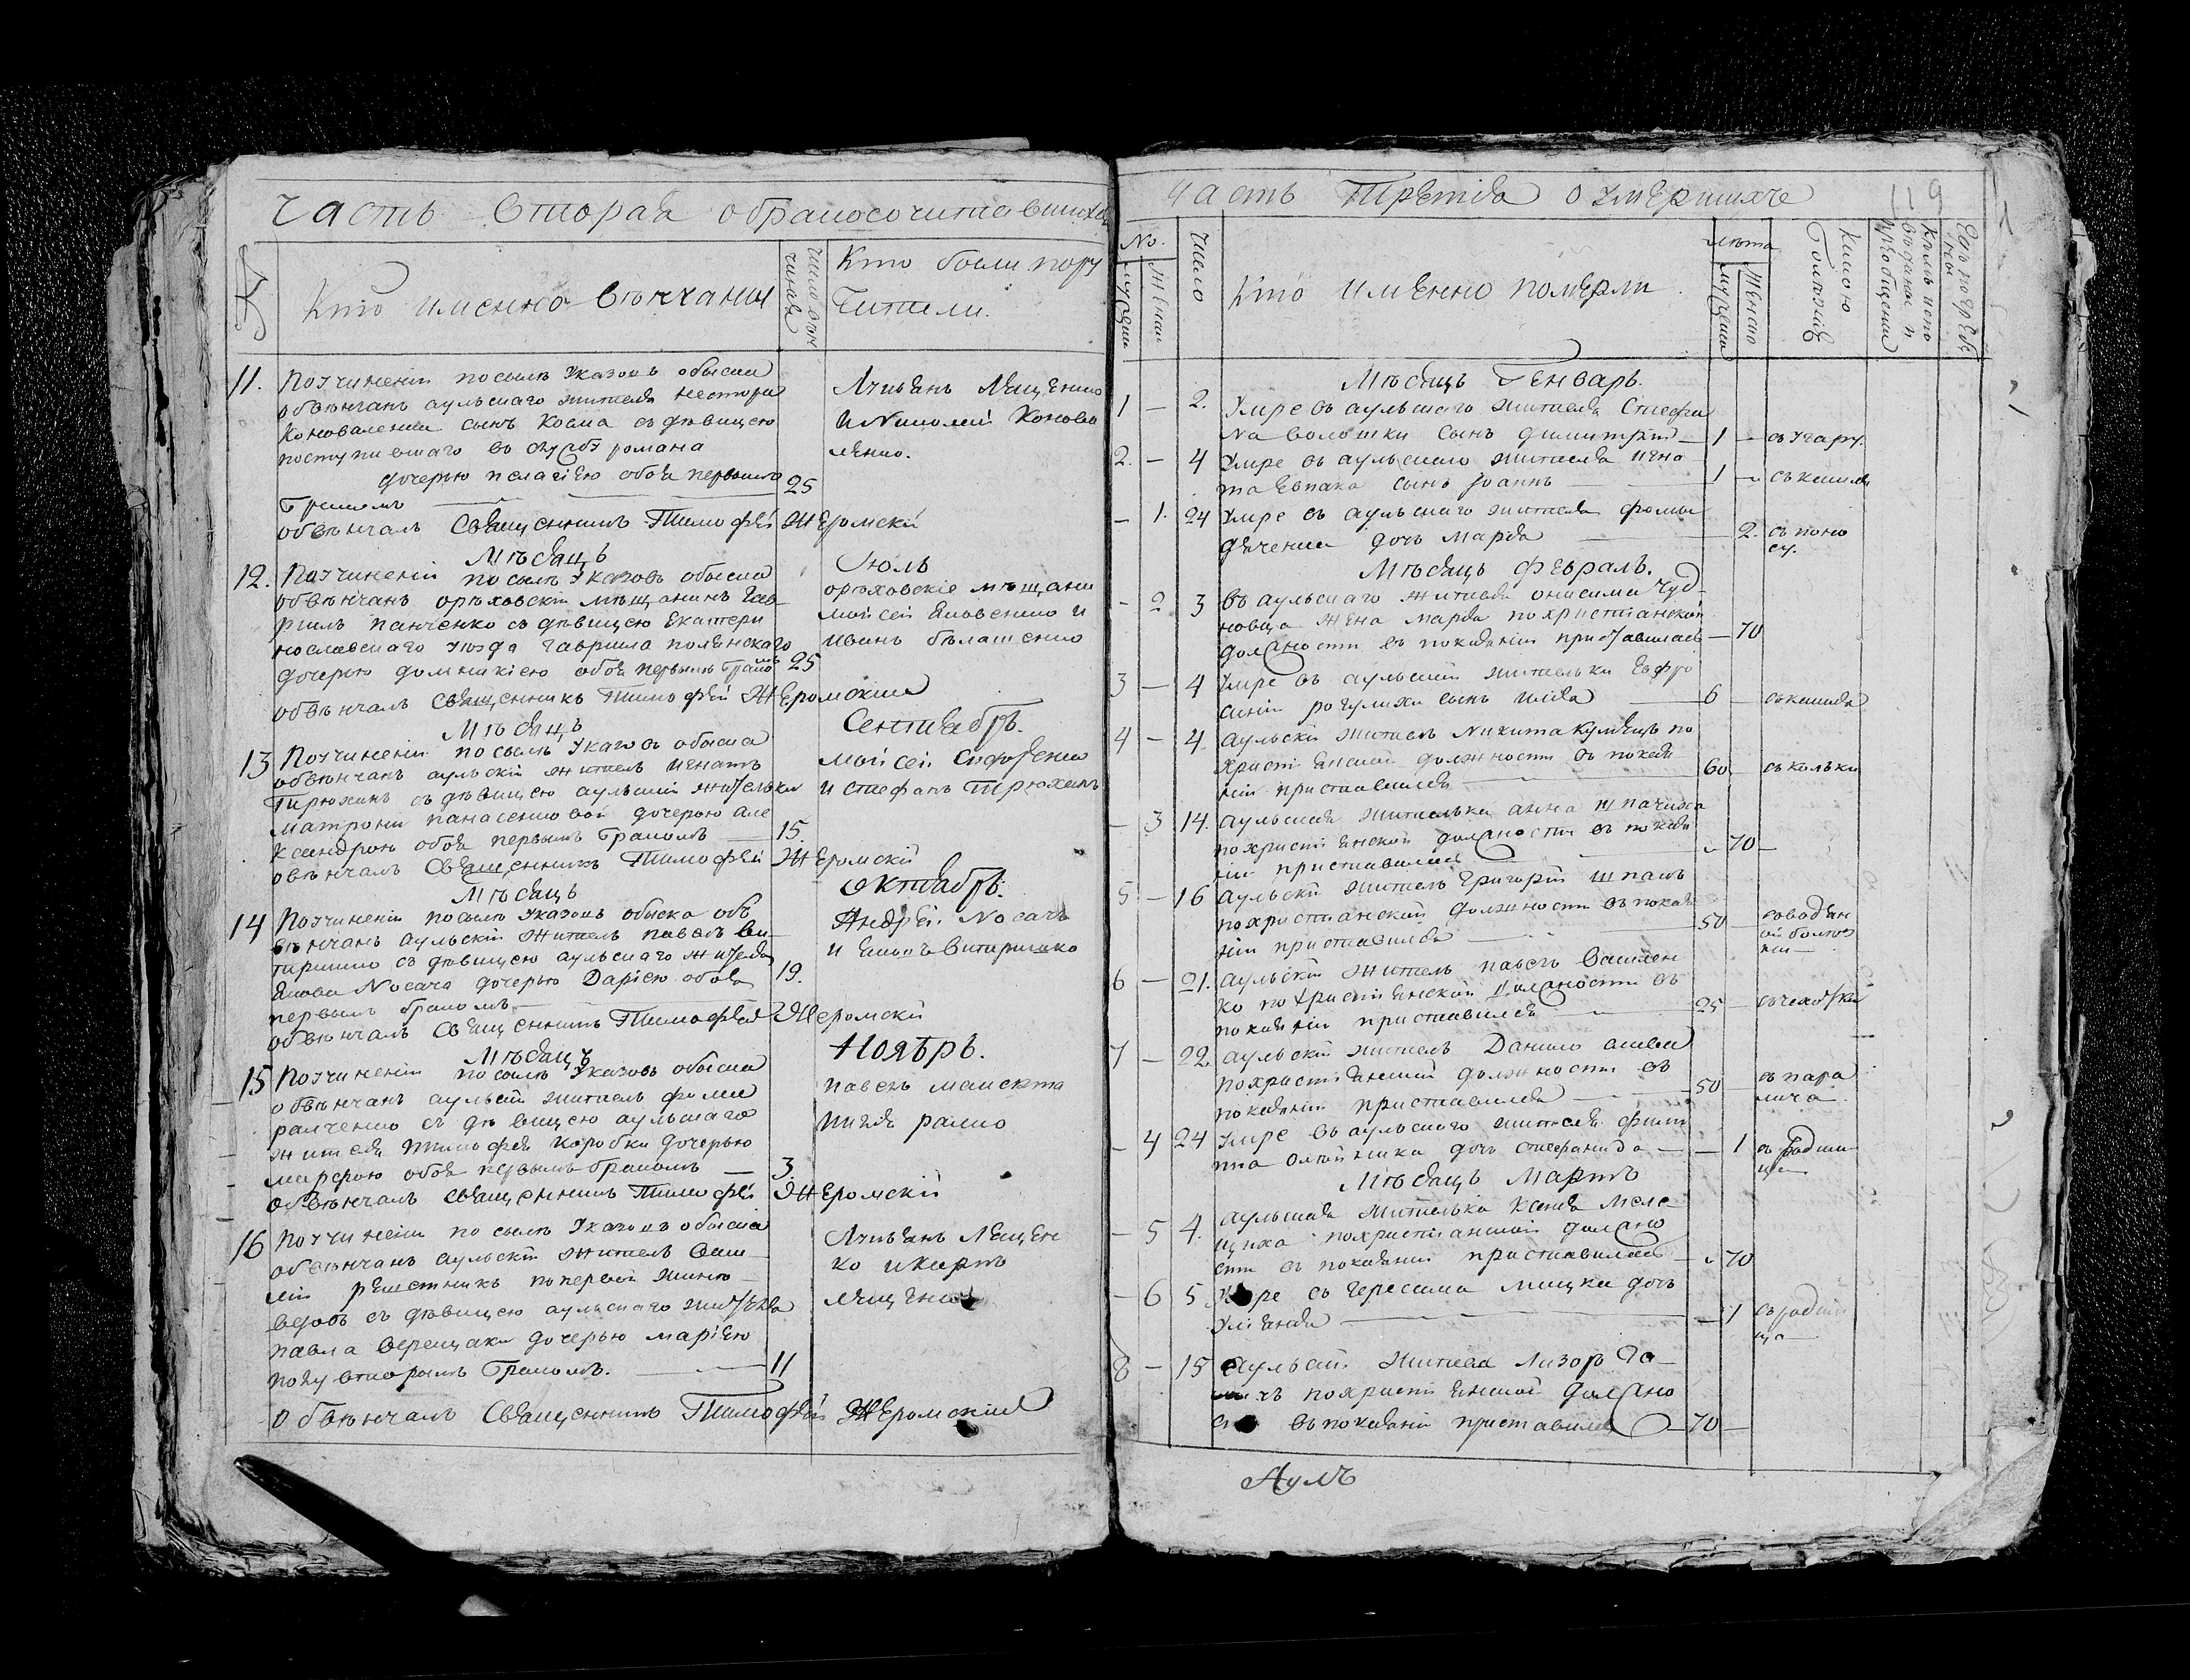 Часть Вторая о бракосочитавшихся
№
Кто имснно вѣнчаны
число вѣн
чания
Кто были пору
чители.
11. По учинении по силѣ Указовъ обыска
обвѣнчанъ аульскаго жителя Нестора
Коноваленка сынъ Косма съ дѣвицею
поступившаго въ службу Романа
дочерью Пелагиею обоя первымъ
бракомъ 25
Лукьянъ Лещенко
и Николай Конова
ленко.
обвѣнчалъ Священникъ Тимофей Жеромский
Мѣсяцъ Июль
12. По учинении по силѣ Указовъ обыска
обвѣнчанъ орѣховский мѣщанинъ Гав
риилъ Панченко съ дѣвицею Екатери
нославскаго уѣзда Гавриила Полянскаго
дочерью Домникиею обоя первымъ бракомъ 25
орѣховские мѣщани
Мойсей Яковенко и
Иванъ Бѣлашенко
обвѣнчалъ Священникъ Тимофей Жеромский
Мѣсяцъ Сентябрь.
13 По учинении по силѣ Указовъ обыска
обвѣнчанъ аульский житель Игнатъ
Тирюхинъ съ дѣвицею аульской жительки
Матроны Панасенковой дочерью Але
ксандрою обоя первымъ бракомъ 15.
Мойсей
и Стефанъ Тирюхинъ
обвѣнчалъ Священникъ Тимофей Жеромский
Мѣсяцъ Октябрь.
14 По учинении по силѣ Указовъ обыска об
вѣнчанъ аульский житель Павелъ Ви
таришко съ дѣвицею аульскаго жителя
Якова Носача дочерью Дариею обоя 19.
первымъ бракомъ
Андрей Носачъ
и Яковъ Витаришко
обвѣнчалъ Священникъ Тимофей Жеромский
Мѣсяцъ Ноябрь.
15 По учинении по силѣ Указовъ обыска
обвѣнчанъ аульский житель Фома
Рамченко съ дѣвицею аульскаго
жителя Тимофея Коробки дочерью
Марфою обоя первымъ бракомъ 3.
Павелъ
обвѣнчалъ Священникъ Тимофей Жеромский
16 По учинении по силѣ Указовъ обыска
обвѣнчанъ аульский житель Васи
лий Решетникъ по первой жинѣ
вдовъ съ дѣвицею аульскаго жителя
Павла Верещаки дочерью Мариею
вторымъ бракомъ. 11
Лукьянъ Лещен
ко и Карпъ
Лещенко
обвѣнчалъ Священникъ Тимофей Жеромский
Часть Третия о Умершихъ
No.
мужеска
женска
Число
Кто именно померли
лѣта
мужеска
женска
какою
болѣзнию
Кѣмъ исповѣданы и приобщены
Гдѣ погребены
Мѣсяцъ Генварь.
1 — 2. Умре въ аульскаго жителя Стефа
на Волошки сынъ Димитрий — 1 — съ угару.
2. — 4 Умре въ аульскаго жителя Игна
та Евпака сынъ Иоаннъ — 1 — съ кашля
— 1. 24 Умре съ аульскаго жителя Фомы
Дяченка дочь Марфа — 2. съ поно
су.
Мѣсяцъ Февраль.
— 2 3 въ аульскаго жителя Онисима Чуд
новца жена Марфа по христианской
должности въ покаянии приставилась — 70
3 — 4 Умре въ аульской жительки Евфро
синии Рогулихи сынъ Илия — 6 съ кашля
4 — 4. аульский житель Никита по
християнской должности въ покая
нии приставился 60 съ кольки
— 3 14. аульская жителька Анна Шпачиха
по християнской должности въ покая
нии приставилась — 70 —
5 — 16 аульский житель Григорий Шпакъ
по христианской должности въ покая
нии приставился — 50 — с водян
ой болѣз
ни —
6 — 21. аульский житель Павелъ Василен
ко по християнской должности въ
покаянии приставился — 25 — съ чахотки
7 — 22. аульский житель Данило
по християнской должности въ
покаянии приставился — 50 съ пара
лича
— 4 24 Умре въ аульскаго жителя Филип
па Олейника дочь Стефанида — — 1 съ родим
ца
Мѣсяцъ Мартъ
— 5 4. аульская жителька Ксения
по христианской должно
сти въ покаянии приставилась — 70
— 6 5 Умре съ Герасима Мицка дочь
Улияния — 1 съ родим
ца
8 — 15 аульский житель Лазоръ
по християнской должно
сти въ покаянии приставился — 70 —
Аулъ